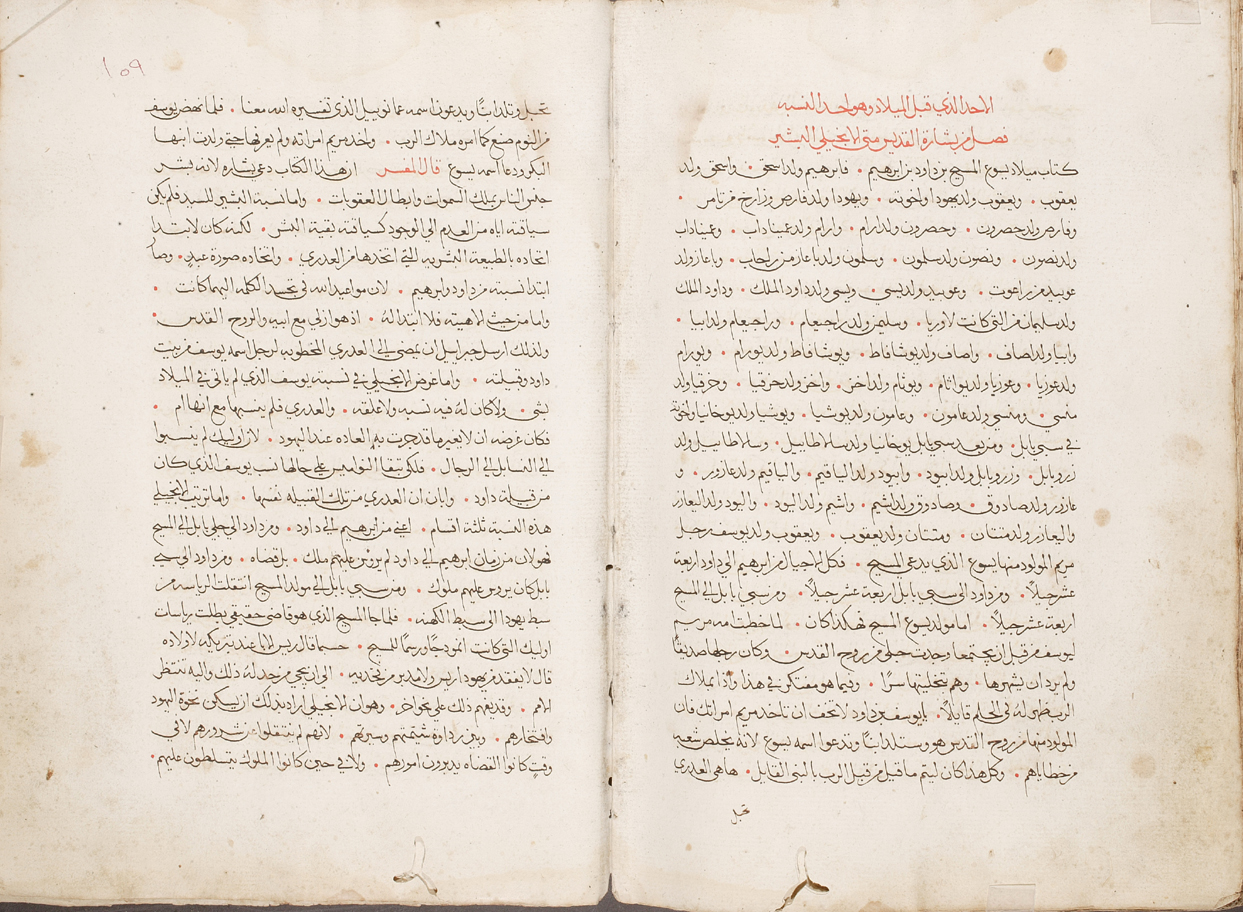 الاحد الذي قبل الميلاد وهو احد النسبه
فصل من بشارة القديس متى الانجيلي البشير
كتاب ميلاد يسوع المسيح بن داود بن ابرهيم • فابرهيم ولد اسحق • واسحق ولد
يعقوب • ويعقوب ولد يهودا واخوته • ويهودا ولد فارص وزارخ من تامر •
وفارص ولد حصرون • وحصرون ولد ارام • وارام ولد عميناداب • وعميناداب
ولد نصون • ونصون ولد سلمون • وسلمون ولد باعاز من راحاب • وباعاز ولد
عوبيد من راعوت • وعوبيد ولد يسي • ويسي ولد داود الملك • وداود الملك
ولد سليمان من التي كانت لاوريا • وسليمن ولد راجبعام • وراجبعام ولد ابيا •
وابيا ولد اصاف • واصاف ولد يوشافاط • ويوشافاط ولد يورام • ويورام
ولد عوزيا • وعوزيا ولد يواثام • ويوثام ولد احز • واحز ولد حزقيا • وحزقيا ولد
منسي • ومنسي ولد عامون • وعامون ولد يوشيا • ويوشيا ولد يوخانيا واخوته
في سبي بابل • ومن بعد سبي بابل يوخانيا ولد سلاطاييل • وسلاطاييل ولد
زروبابل • وزروبابل ولد ابيود • وابيود ولد الياقيم • والياقيم ولد عازور • و
عازور ولد صادوق • وصادوق ولد اشيم • واشيم ولد اليود • واليود ولد اليعازر
واليعازر ولد متتان • ومتتان ولد يعقوب • ويعقوب ولد يوسف رجل
مريم المولود منها يسوع الذي يدعى المسيح • فكل الاجيال من ابرهيم الى داود اربعة
عشر جيلاً • ومن داود الى سبي بابل اربعة عشر جيلاً • ومن سبي بابل الى المسيح
اربعة عشر جيلاً • اما مولد يسوع المسيح فهكذا كان • لما خطبت امه مريم
ليوسف من قبل ان يجتمعا وجدت حبلى من روح القدس • وكان رجلها صديقاً
ولم يرد ان يشهرها • وهم بتخليتها سراً • وفيما هو مفتكر في هذا واذا بملاك
الرب ظهر له في الحلم قايلاً • يا يوسف بن داود لا تخف ان تاخذ مريم امراتك فان
المولود منها من روح القدس هو وستلد ابناً وتدعوا اسمه يسوع لانه يخلص شعبه
من خطاياهم • وكل هذا كان ليتم ما قيل من قبل الرب بالنبي القايل • ها هي العذرى
تحبل
١٥٩
تحبل وتلد ابناً ويدعون اسمه عمانوييل الذي تفسيره الله معنا • فلما نهض يوسف
من النوم صنع كما امره ملاك الرب • واخذ مريم امراته ولم يعرفها حتى ولدت ابنها
البكر ودعا اسمه يسوع قال المفسر ان هذا الكتاب دعي بشاره لانه بشر
جنس الناس بملك السموات وابطال العقوبات • واما نسبة البشير للسيد فلم يكن
سياقته اياه من العدم الى الوجود كسياقة بقية البشر • لكنه كان لابتدا
اتحاده بالطبيعة البشريه التي اتخذها من العذرى • واتخاده صورة عبدٍ • وصا
ابتدا نسبته من داود وابرهيم • لان مواعيد الله في تجسد الكلمه اليهما كانت •
واما من حيث لاهيته فلا ابتدا لهُ • اذ هو ازلي مع ابيه والروح القدس •
ولذلك ارسل جبراييل ان يمضي الى العذرى المخطوبه لرجل اسمه يوسف من بيت
داود وقبيلته • واما غرض الانجيلي في نسبته يوسف الذي لم ياتي في الميلاد
بشي • ولا كان لهُ فيه نسبه ولا علقه • والعذرى فلم ينسبها مع انها ام •
فكان غرضه ان لا يغير ما قد جرت به العاده عند اليهود • لان اوليك لم ينسبوا
الى النسا بل الى الرجال • فلكي يبقا النواميس على حالها نسب يوسف الذي كان
من قبيلة داود • وابان ان العذرى من تلك القبيله نفسها • واما ترتيب الانجيلي
هذه النسبة ثلثة اقسام • اعني من ابرهيم الى داود • ومن داود الى جلى بابل الى المسيح
فهو لان من زمان ابرهيم الى داود لم يروس عليهم ملك • بل قضاه • ومن داود الى سبي
بابل كان يروس عليهم ملوك • ومن سبي بابل الى مولد المسيح انتقلت الرياسه من
سبط يهودا الى سبط الكهنه • فلما جا المسيح الذي هو قاضي حقيقي بطلت رياسات
اوليك التي كانت انموذجاً ورسماً للمسيح • حسبما قال ريس الابا عند تبريكه لاولاده
قال لا يفقد من يهودا ريس ولا مدبر من فخذيه • الى ان يجي من حد له ذلك واليه تنتظر
الامم • وقد يفهم ذلك على نحو اخر • وهو ان الانجيلي اراد بذلك ان يسكن نخوة اليهود
وافتخارهم • وبين رداوة شيمتهم وسيرتهم • لانهم لم ينتقلوا عن شرورهم لا في
وقتٍ كانوا القضاه يدبرون امورهم • ولا في حين كانوا الملوك يتسلطون عليهم •